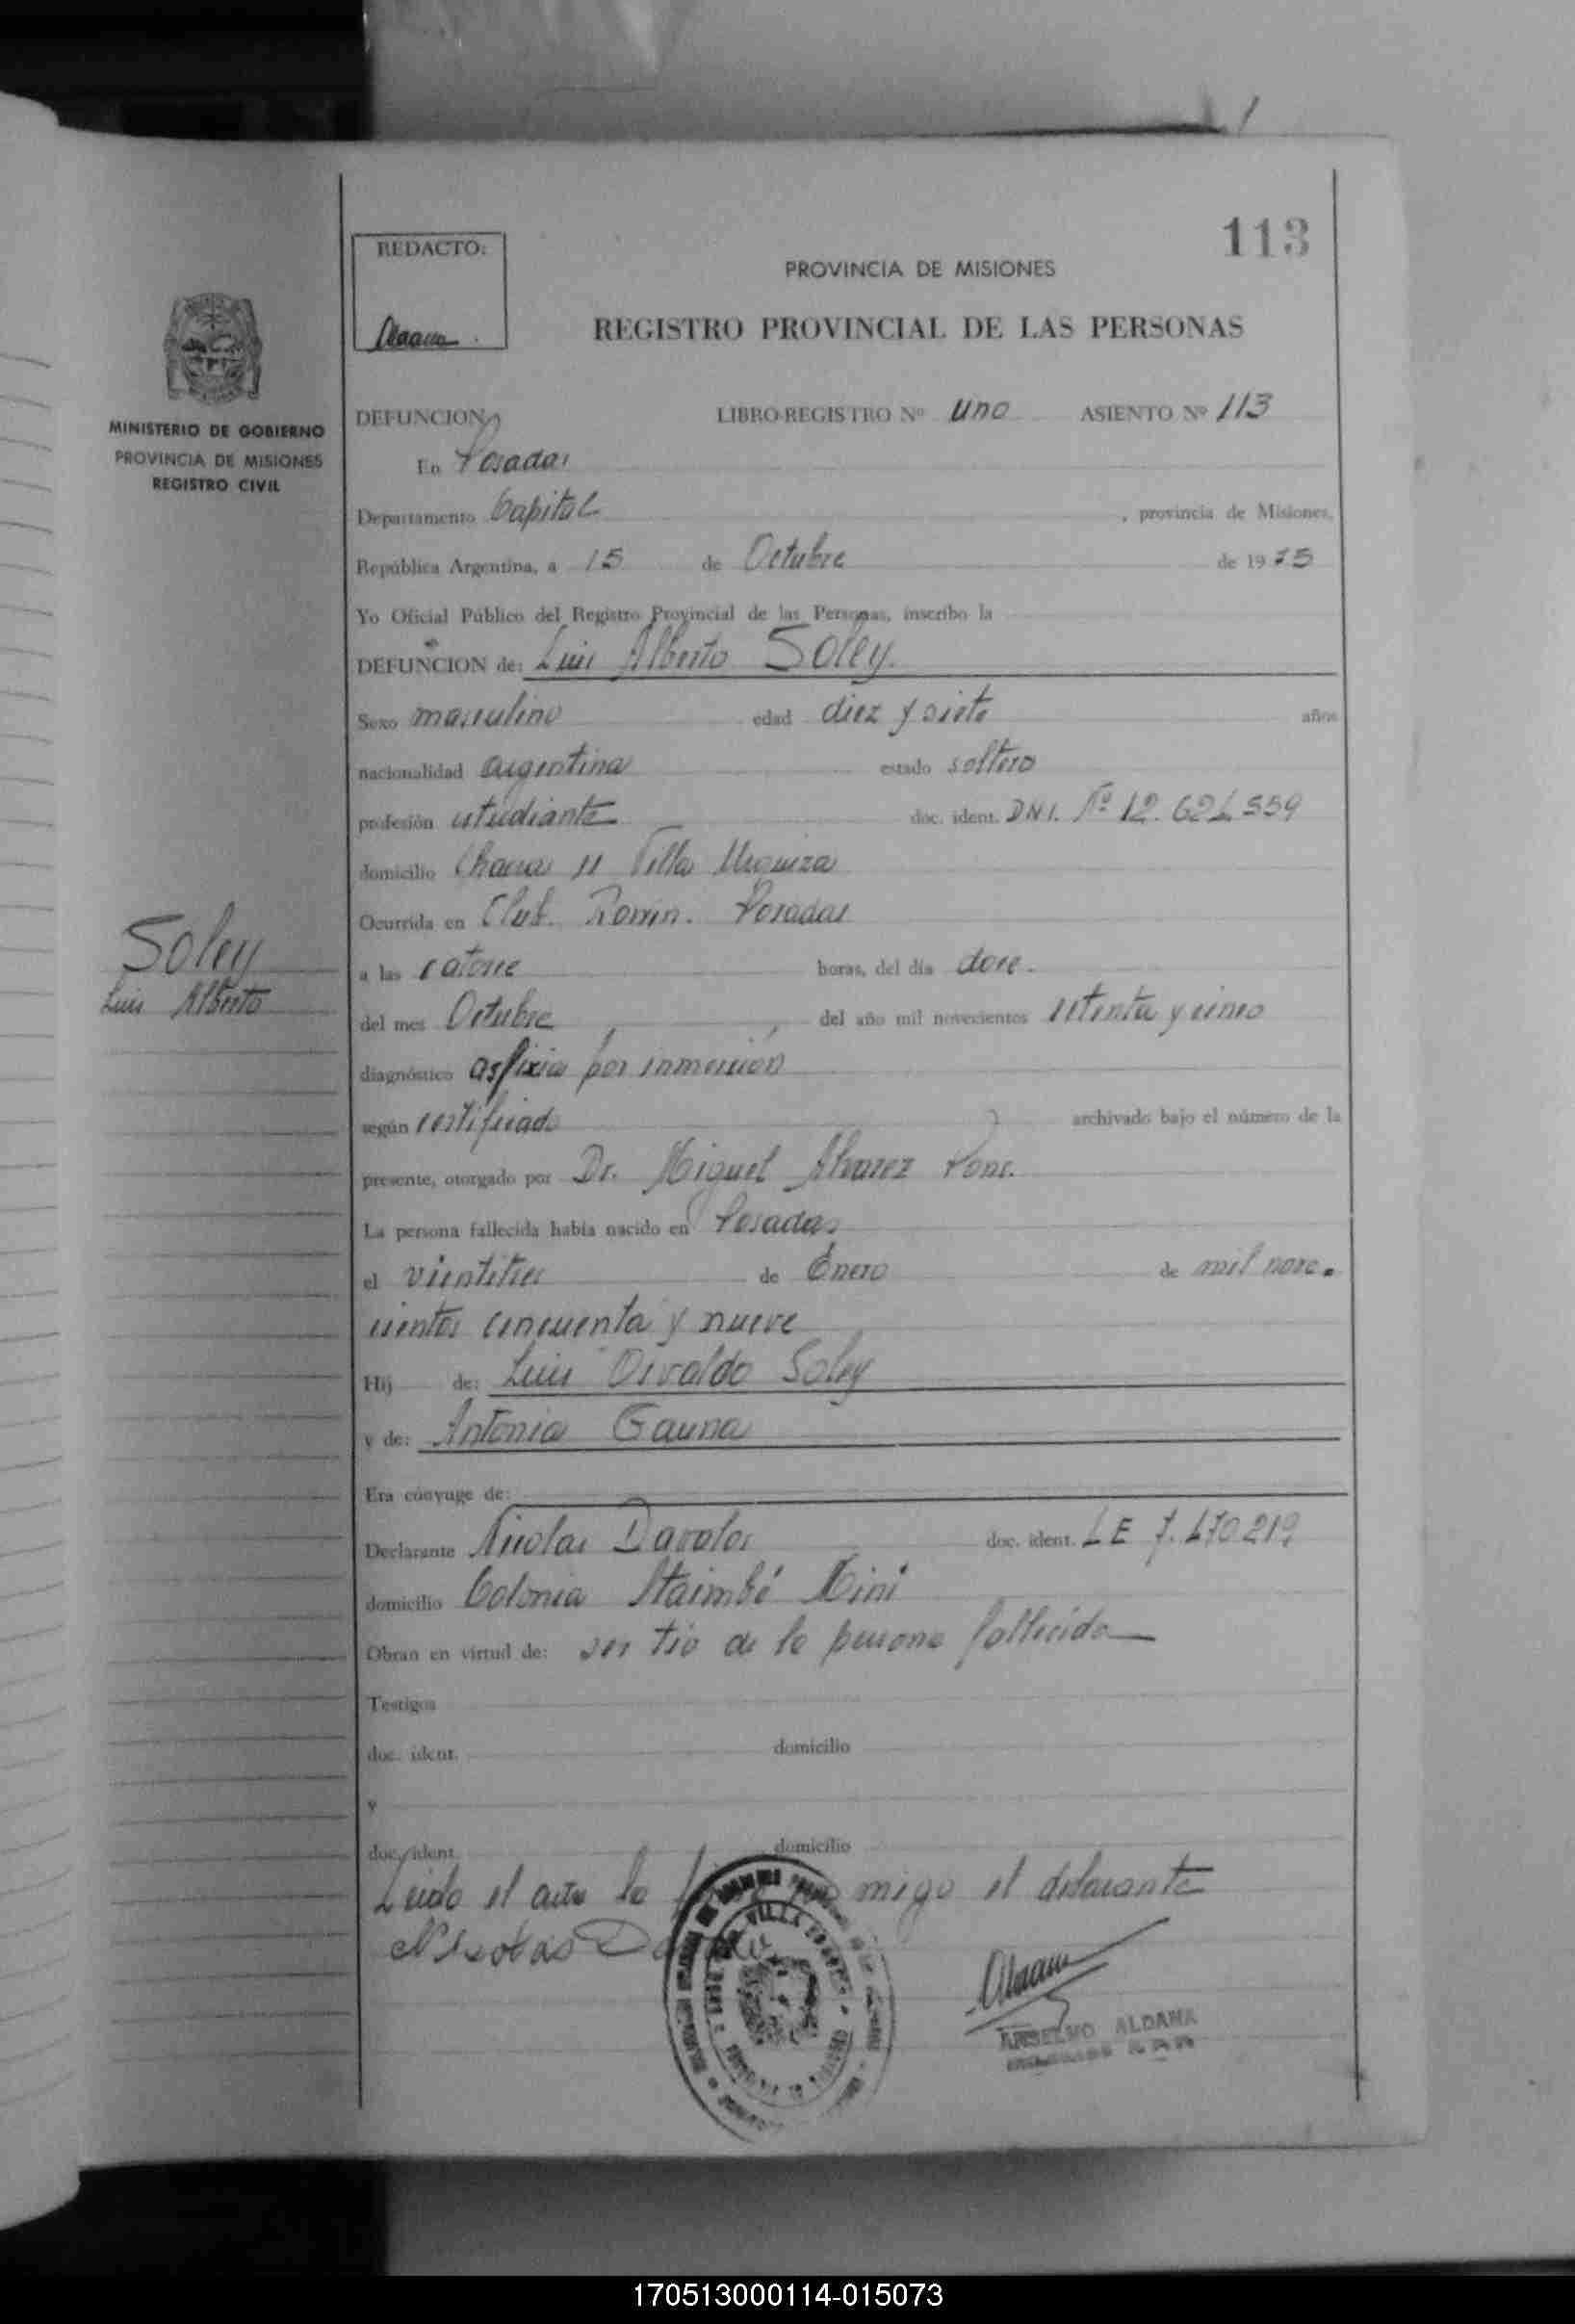 113
REDACTO:
PROVINCIA DE MISIONES
REGISTRO PROVINCIAL DE LAS PERSONAS
MINISTERIO DE GOBIERNO
PROVINCIA DE MISIONES
REGISTRO CIVIL
DEFUNCION LIBRO-REGISTRO Nº uno ASIENTO Nº 113
En Posadas
Departamento Capital, provincia de Misiones,
República Argentina, a 15 de Octubre de 1975
Yo Oficial Público del Registro Provincial de las Personas, inscribo la
DEFUNCION de: Luis Alberto Soley
Sexo masculino edad diez y siete años
nacionalidad argentina estado soltero
profesión estudiante doc. ident. DNI. Nº
domicilio Chacra 11 Villa Urquiza
Ocurrida en Club. Posadas
Soley
Luis Alberto
a las catorce horas, del día doce
del mes Octubre del año mil novecientos setenta y cinco
diagnóstico asfixia por inmersión
según certificado archivado bajo el número de la
presente, otorgado por Dr. Miguel Alvarez Pons.
La persona fallecida había nacido en Posadas
el vientitres de Enero de mil nove.
cientos cincuenta y nueve
Hij de: Luis Osvaldo Soley
y de: Antonia Gauna
Era cónyuge de:
Declarante Nicolas Davalos doc. ident. LE
domicilio Colonia Itaimbé Mini
Obran en virtud de: ser tio de la persona fallecida
Testigos
doc. ident. domicilio
y
doc. ident. domicilio
Leido el acta la migo el declarante
Nicolas
ANSELMO ALDANA
170513000114-015073